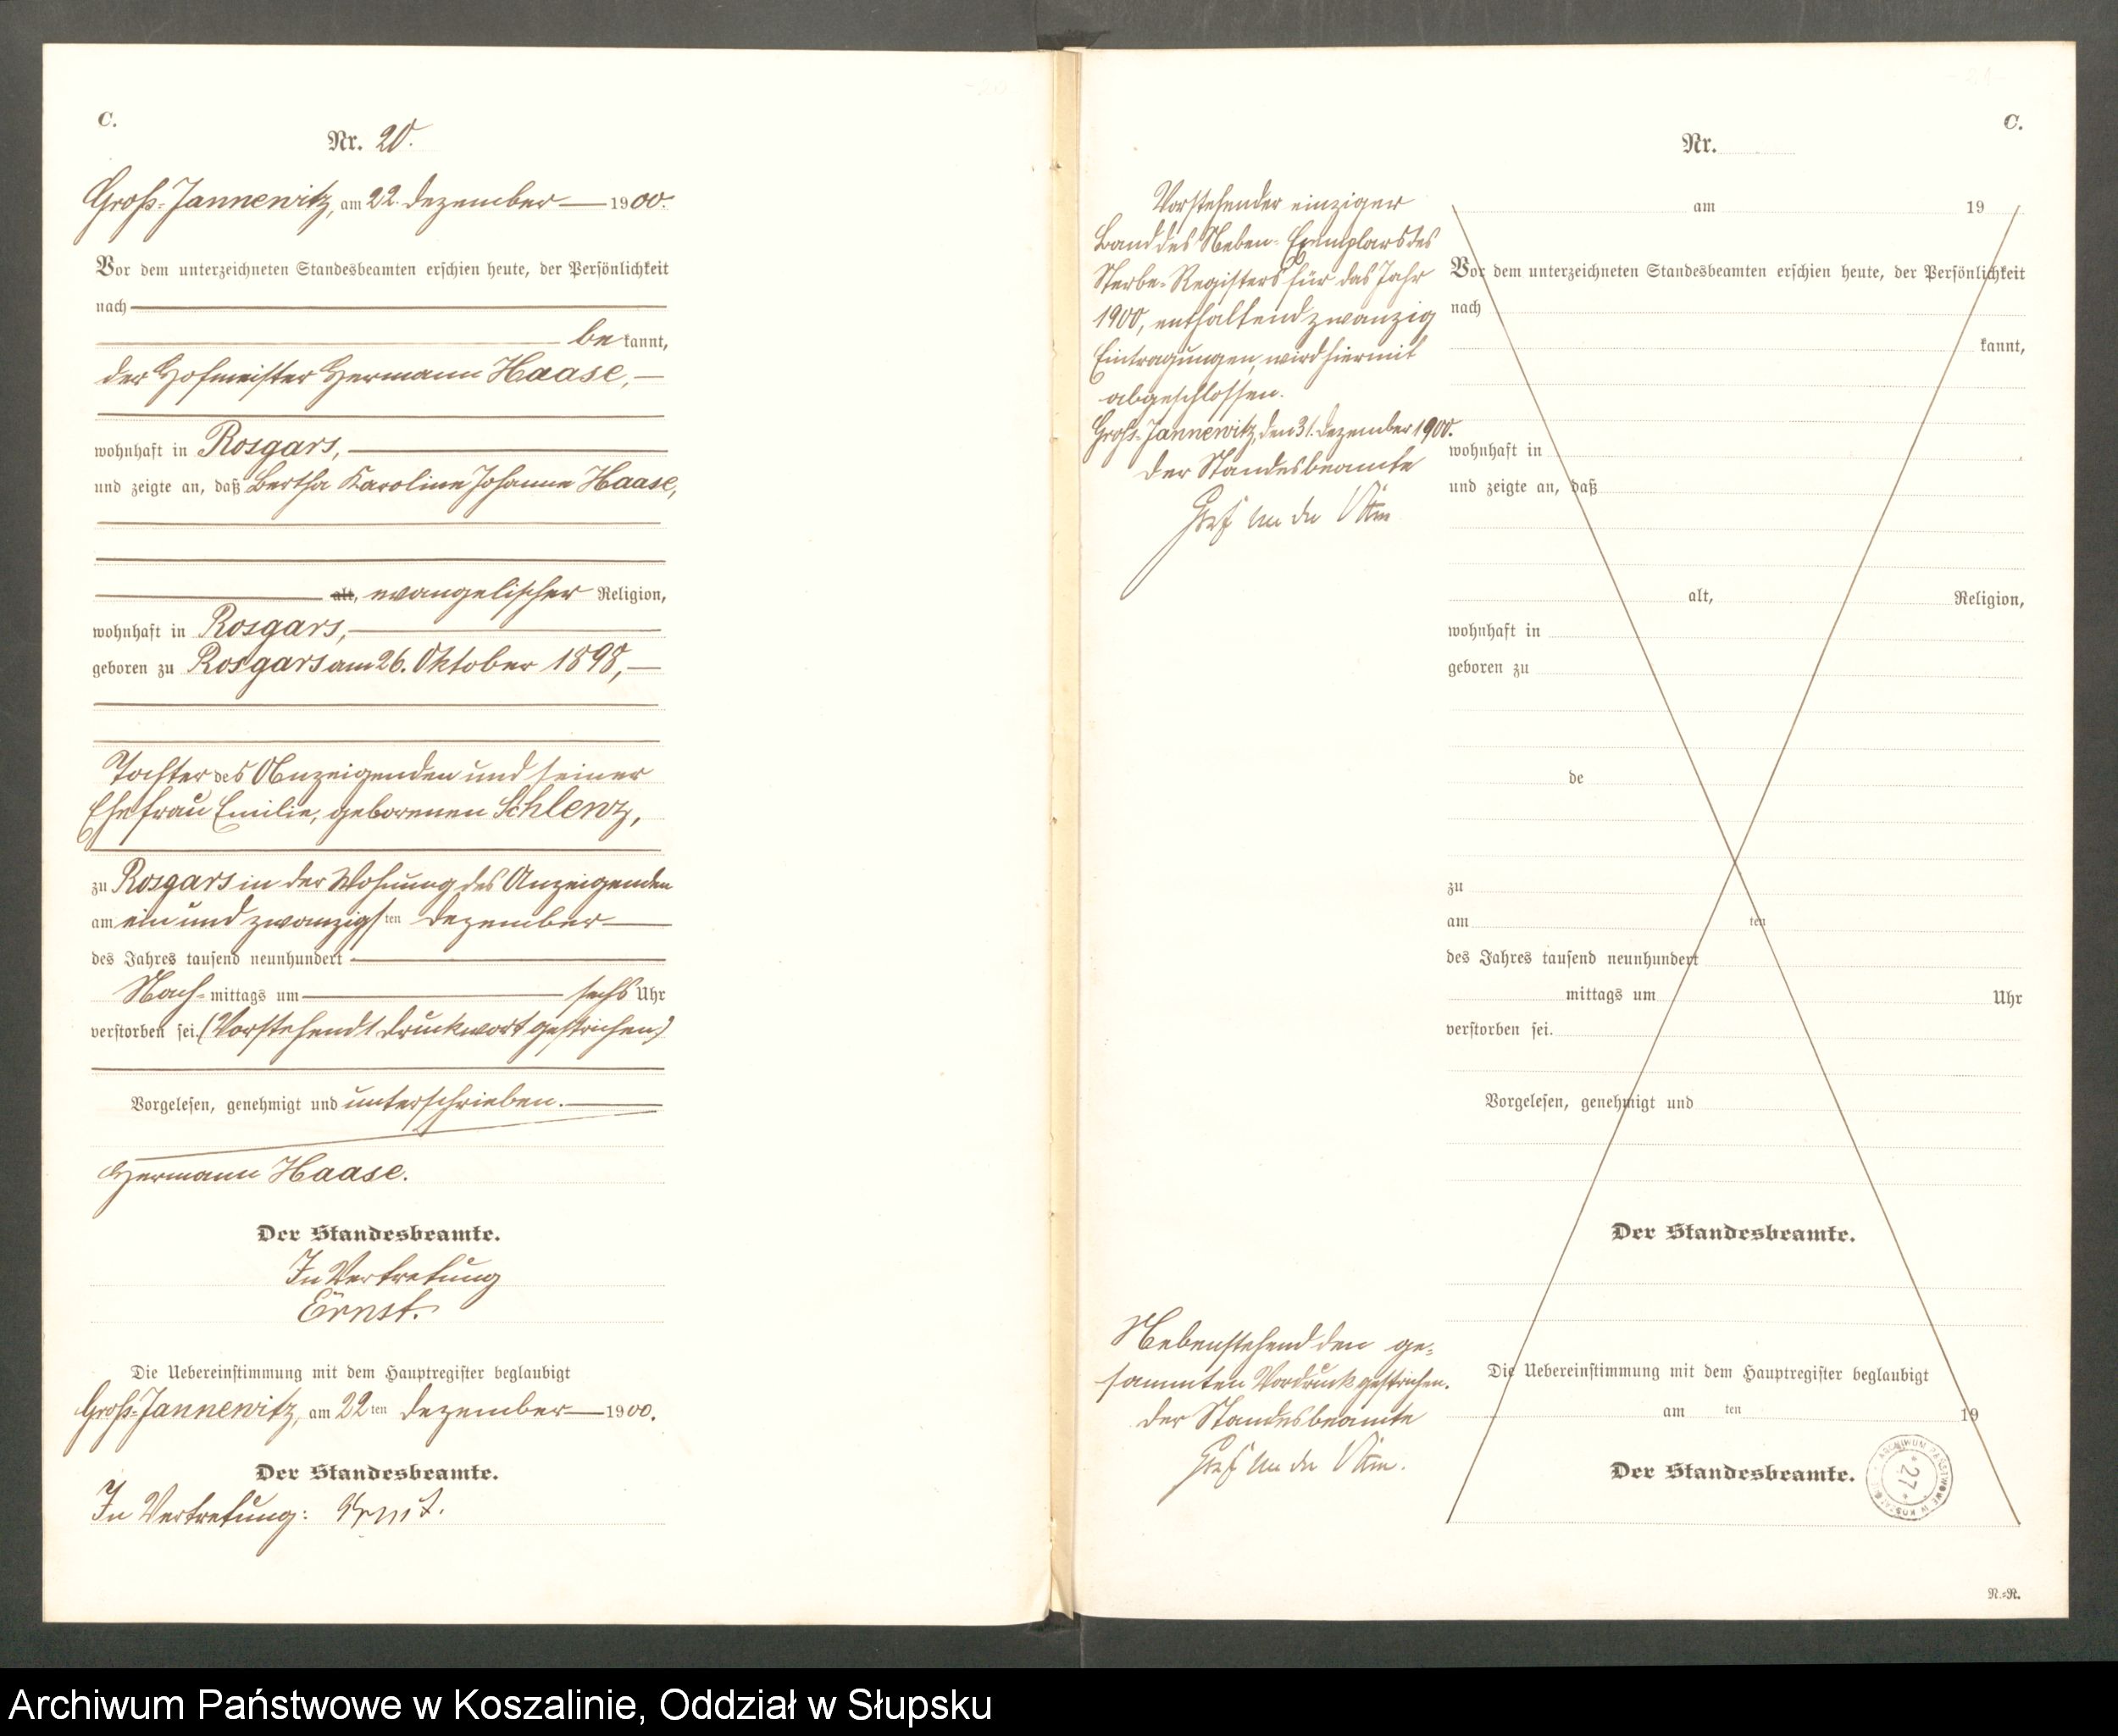 C.
Nr. 20.
Groß-Jannewitz, am 22. Dezember 1900.
Vor dem unterzeichneten Standesbeamten erschien heute, der Persönlichkeit
nach
be kannt,
der Hofmeister Hermann Haase,
wohnhaft in Rosgars,
und zeigte an, daß Bertha Karoline Johanne Haase,
alt, evangelischer Religion,
wohnhaft in Rosgars,
geboren zu Rosgars am 26. Oktober 1898,
Tochter des Anzeigenden und seiner
Ehefrau Emilie, geborenen Schlenz,
zu Rosgars in der Wohnung des Anzeigenden
am ein und zwanzigsten Dezember
des Jahres tausend neunhundert
Nach-mittags um sechs Uhr
verstorben sei. (Vorstehend 1 Druckwort gestrichen)
Vorgelesen, genehmigt und unterschrieben.
Hermann Haase.
Der Standesbeamte.
In Vertretung
Ernst.
Die Uebereinstimmung mit dem Hauptregister beglaubigt
Groß-Jannewitz, am 22ten Dezember 1900.
Der Standesbeamte.
In Vertretung: Ernst.
Vorstehender einziger
Band des Neben-Exemplars des
Sterbe-Registers für das Jahr
1900, enthaltend zwanzig
Eintragungen, wird hiermit
abgeschlossen.
Groß-Jannewitz, den 31. Dezember 1900.
Der Standesbeamte
Nebenstehend den ge-
sammten Vordruck gestrichen.
Der Standesbeamte
C.
Nr.
am 19
Vor dem unterzeichneten Standesbeamten erschien heute, der Persönlichkeit
nach
kannt,
wohnhaft in
und zeigte an, daß
alt, Religion,
wohnhaft in
geboren zu
de
zu
am ten
des Jahres tausend neunhundert
mittags um Uhr
verstorben sei.
Vorgelesen, genehmigt und
Der Standesbeamte.
Die Uebereinstimmung mit dem Hauptregister beglaubigt
am ten 19
Der Standesbeamte.
ARCHIWUM PAŃSTWOWE W KOSZALINIE
* 27 *
N.=R.
Archiwum Państwowe w Koszalinie, Oddział w Słupsku